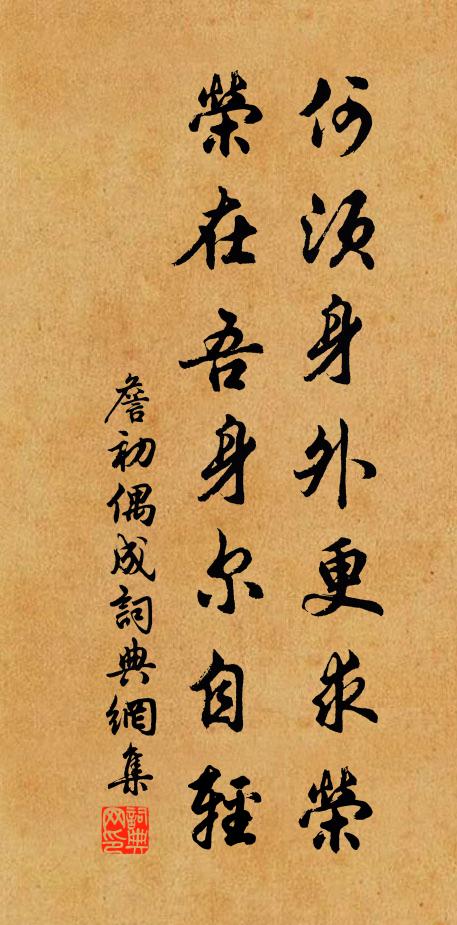 何須身外更求榮
榮在吾身尔自輕
詹初偶成詞典網集
詞典網印